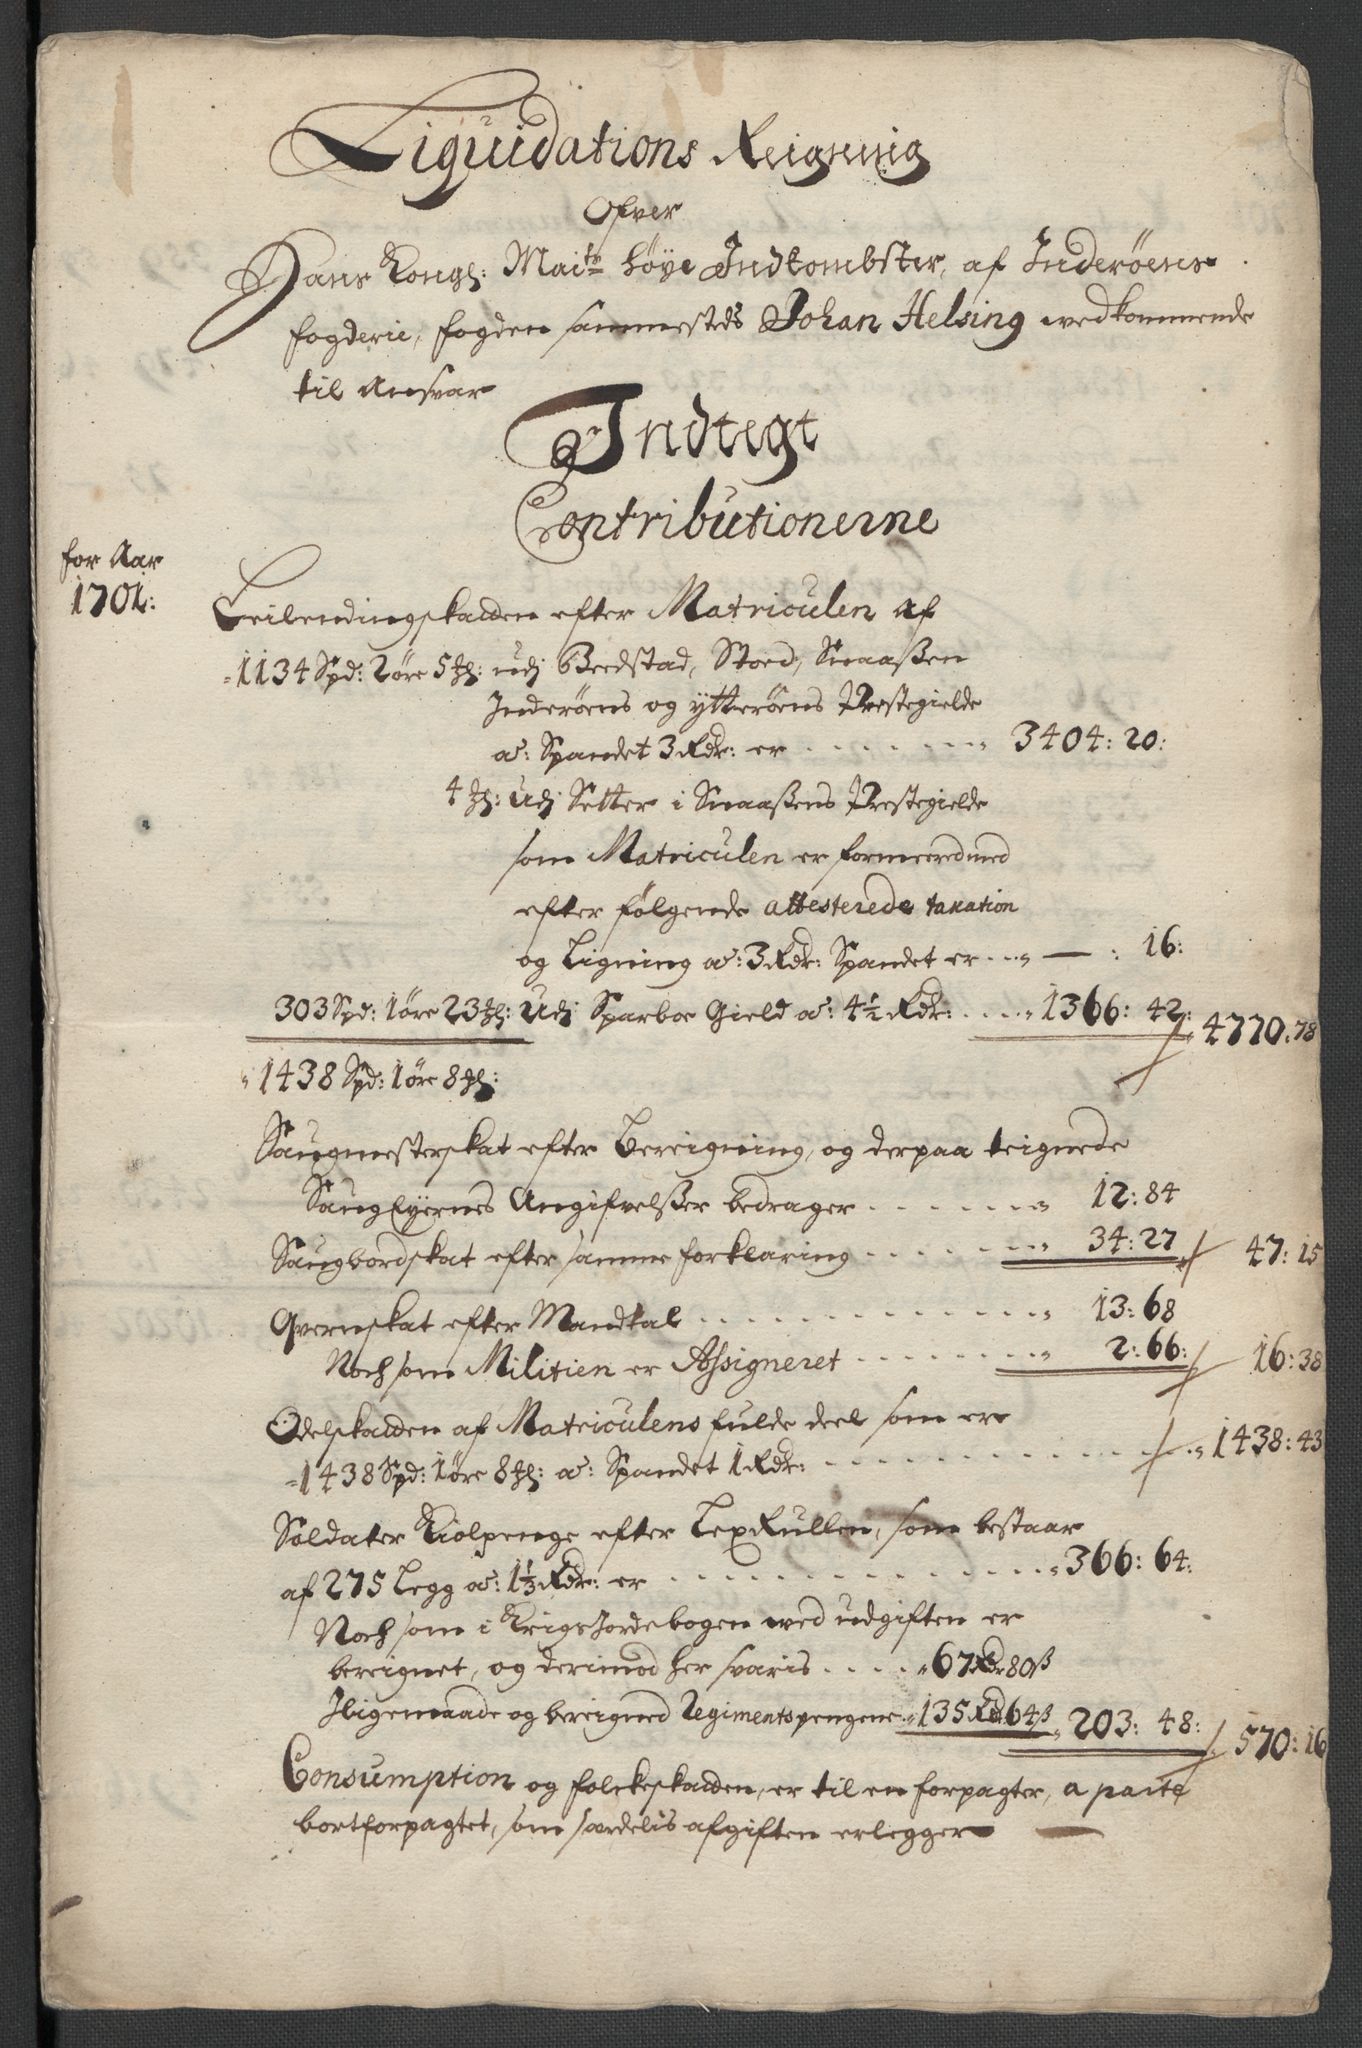 Liquidations Reigning
Ofver
Hans Kongl: Maits høye Indkombster, af Inderøens
fogderie, fogden sammesteds Johan Helsing vedkommende
til Ansvar
Indtegt
Contributionerne
for Aar
1701:
Leilendingskatten efter Matriculen af
1134 Spd: 2 øre 5 : udj Beedstad, Stoed, Snaaßen
Inderøens og ytterøens Prestegielde
a: Spandet 3 Rdr: er . . . . . . . 3404: 20:
4 : Udj Setter i Snaaßens Prestegielde
som Matriculen er formeered med
efter følgende attesterede taxation
og Ligning a: 3 Rdr: Spandet er . . . — : 16:
303 Spd: 1 øre 23 : Udj Sparboe Gield a: 4½ Rdr: . . . . 1366: 42: 4770: 78
1438 Spd: 1 øre 8 :
Saugmesterskat efter Bereigning, og derpaa teignede
SaugEyernes Angifvelßer bedrager . . . . . . . 12: 84
Saugbordskat efter samme forklaring . . . . . . . 34: 27 47: 15
Qvernskat efter Mandtal . . . . . . . . . . . . 13: 68
Noch som Militien er Assigneret . . . . . . . . 2: 66: 16: 38
Odelskatten af Matriculens fulde deel som er
1438 Spd: 1 øre 8 : a: Spandet 1 Rdr: . . . . . . . . . . . . 1438: 43
Soldater Kiolpenge efter LexRullen, som bestaar
af 275 Legg a: 1⅓ Rdr: er . . . . . . . . . . . . . 366: 64:
Noch som i Krigs Jordebogen ved udgiften er
bereignet, og derimod her svaris . . . . 67 Rd 80 ß
Iligemaade og bereigned Regimentspengene 135 Rd 64 ß 203: 48: 570: 16
Consumption og folckeskatten, er til en forpagter, a parte
bortforpagtet, som særdelis afgiften erlegger —